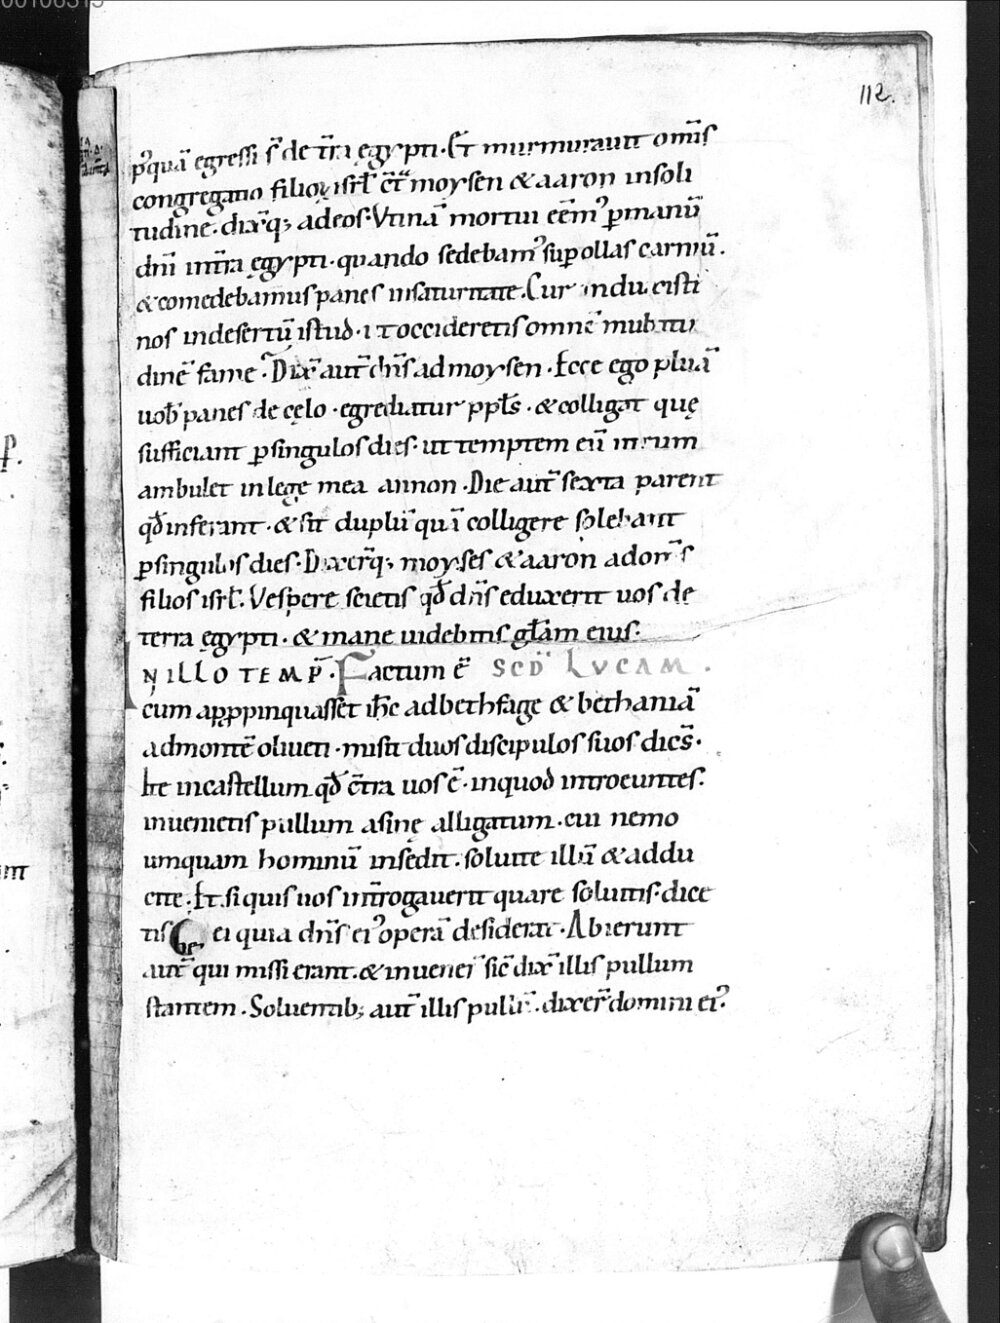 00106315
112.
p᷒quā egressi s̄ de t̄ra ęgypti· Et̄ murmurauit om̄is
congregatio filioꝝ isrł c̄t̄ moysen & aaron in soli
tudine. dix̄q; ad eos· Vtinā mortui eēm᷒ p̱ manū
dn̄i in t̄ra ęgypti· quando sedebam᷒ sup̱ ollas carniū.
& comedebamus panes in saturitate. Cur induxisti
nos in desertū istud· ut occideretis omnē multitu
dinē fame. Dix̄ aut̄ dn̄s ad moysen. Ecce ego pluā
uob̄ panes de cęlo· egrediatur ppls̄· & colligat quę
sufficiant p̱ singulos dies· ut temptem eū utrum
ambulet in lege mea annon. Die aut̄ sexta parent
qđ inferant· & sit duplū quā colligere solebant
p̱ singulos dies. Dixer̄q; moyses & aaron ad om̄s
filios isrł. Vespere scietis qđ dn̄s eduxerit uos de
terra ęgypti· & mane uidebitis głam eius·
IN ILLO TEMP̄. Factum ē SCD̄ LVCAM.
cum apppinquasset ih̄c ad bethfage & bethaniā
ad montē oliueti· misit duos discipulos suos dicēs·
Ite in castellum qđ c̄tra uos ē· in quod introeuntes·
inuenietis pullum asinę alligatum· cui nemo
umquam hominū insedit. soluite illū & addu
cite. Et si quis uos int̄rogauerit quare soluitis· dice
tis ei quia dn̄s ei᷒ operā desiderat. Abierunt
aut̄ qui missi erant. & inuener̄ sic̄ dix̄ illis pullum
stantem. Soluentib; aut̄ illis pullū. dixer̄ domini ei᷒